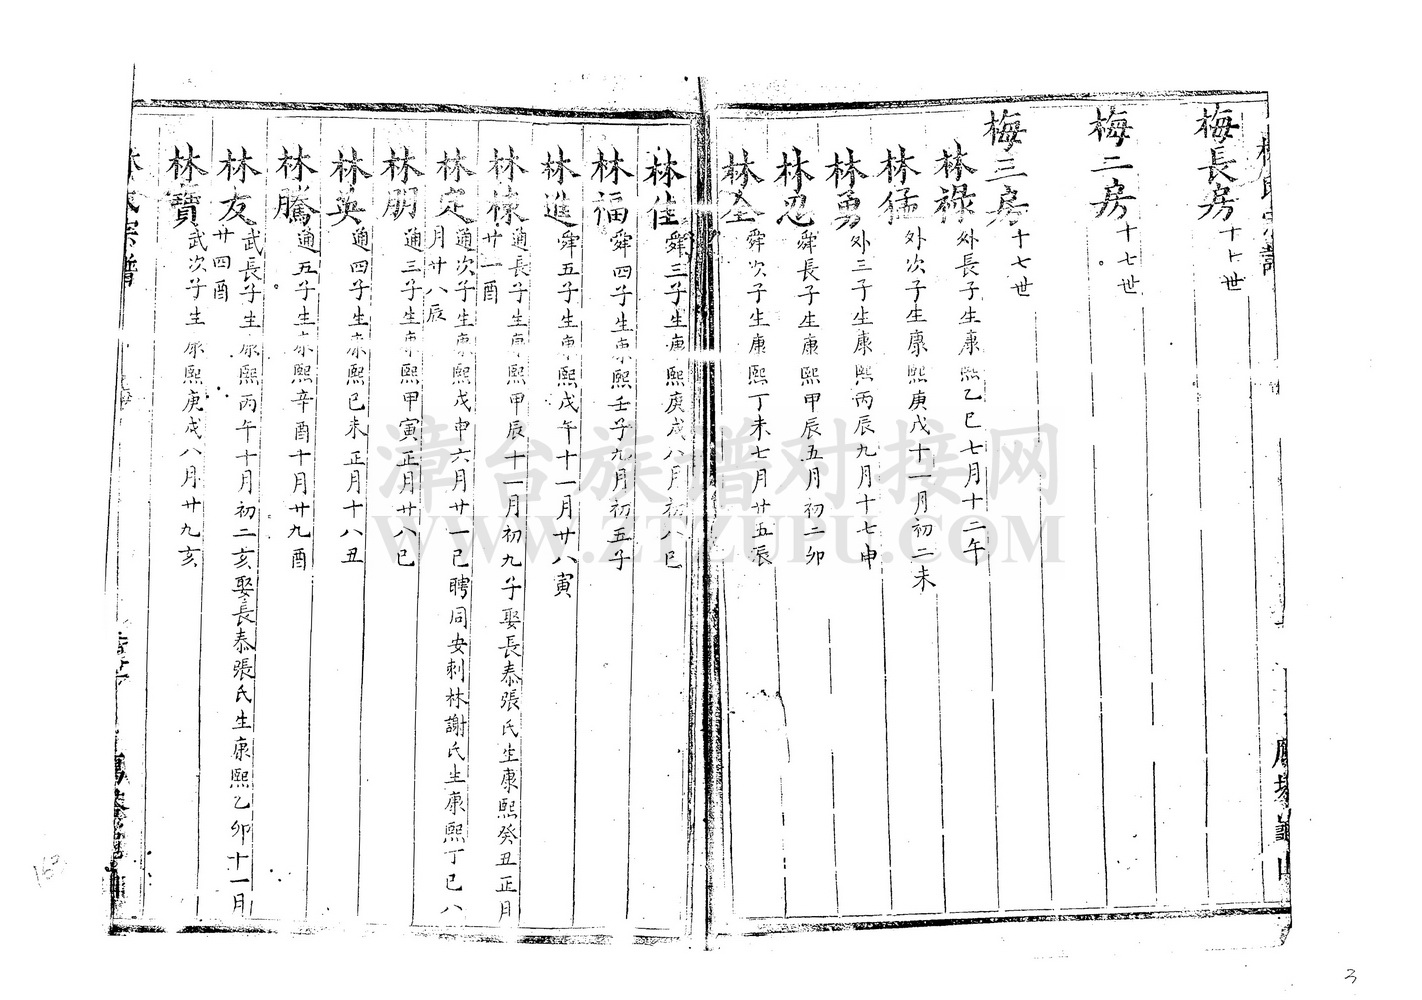 梅長房 十七世
梅二房 十七世
梅三房 十七世
林祿 外長子生康熙乙巳七月十二午
林猛 外次子生康熙庚戊十一月初二未
林勇 外三子生康熙丙辰九月十七申
林忍 舜長子生康熙甲辰五月初二卯
林全 舜次子生康熙丁未七月廿五辰
林佳 舜三子生康熙庚戌八月初八巳
林福 舜四子生康熙壬子九月初五子
林進 舜五子生康熙戊午十一月廿八寅
林棟 通長子生康熙甲辰十一月初九子娶長泰張氏生康熙癸丑正月
廿一酉
林定 通次子生康熙戊申六月廿一巳聘同安刺林謝氏生康熙丁巳八
月廿八辰
林朋 通三子生康熙甲寅正月廿八巳
林英 通四子生康熙己未正月十八丑
林騰 通五子生康熙辛酉十月廿九酉
林友 武長子生康熙丙午十月初二亥娶長泰張氏生康熙乙卯十一月
廿四酉
林寶 武次子生康熙庚戌八月廿九亥
林氏宗譜
漳台族谱对接网
WWW.ZTZUPU.COM
163
3